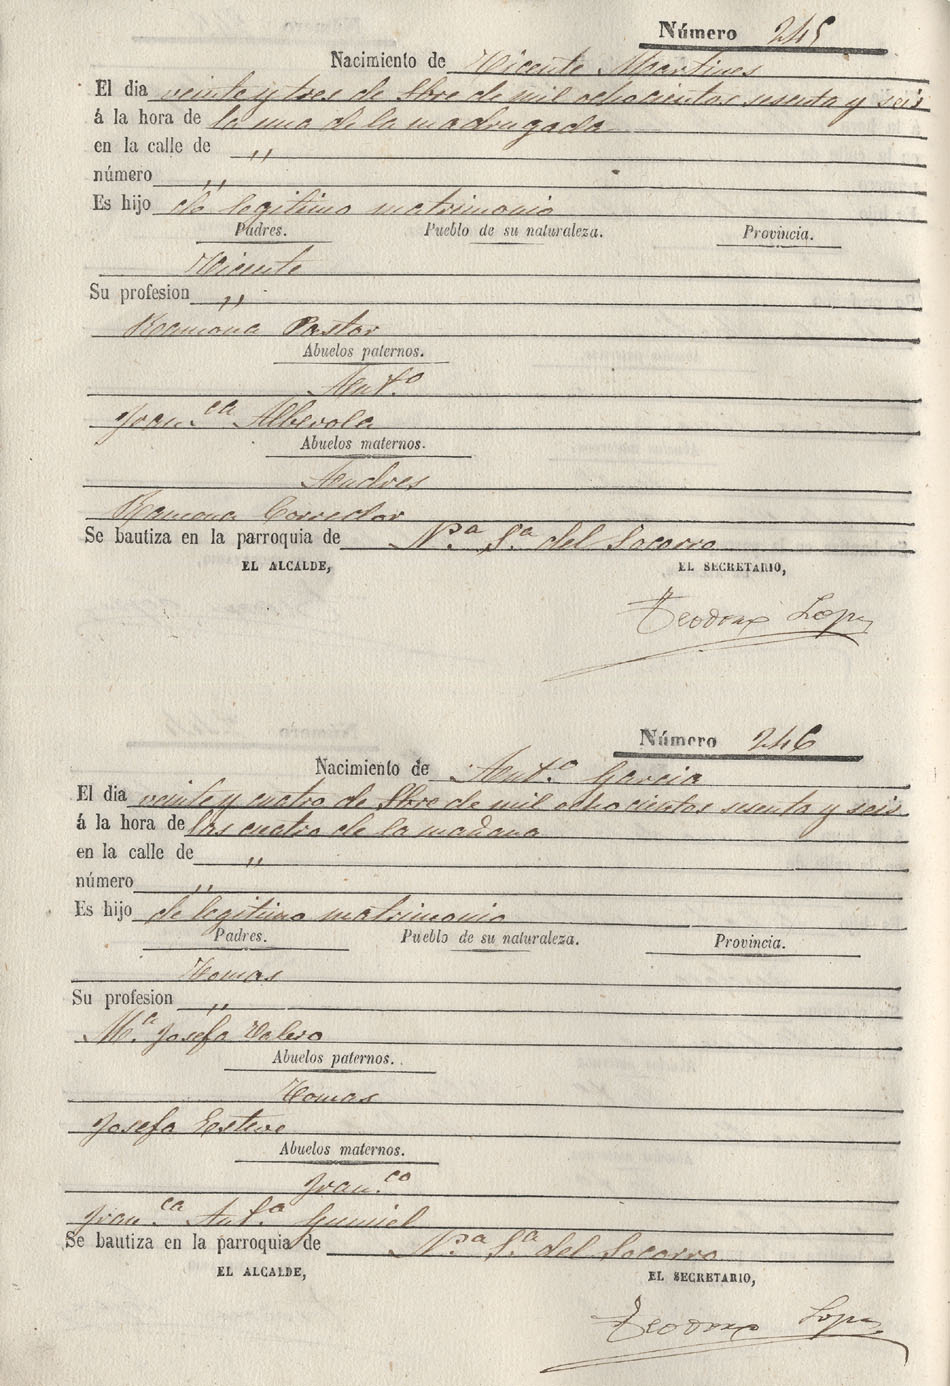 Número 245
Nacimiento de Vicente Martines
El dia veinte y tres de Sbre de mil ochocientos sesenta y seis
á la hora de la una de la madrugada
en la calle de "
número "
Es hijo de legitimo matrimonio
Padres. Pueblo de su naturaleza. Provincia.
Vicente
Su profesion "
Ramona Pastor
Abuelos paternos.
Ant.o
Fran.ca Alberola
Abuelos maternos.
Andres
Ramona Corredor
Se bautiza en la parroquia de N.a S.a del Socorro
EL ALCALDE, EL SECRETARIO,
Teodoro Lopez
Número 246
Nacimiento de Ant.a Garcia
El dia veinte y cuatro de Sbre de mil ochocientos sesenta y seis
á la hora de las cuatro de la mañana
en la calle de "
número "
Es hijo de legitimo matrimonio
Padres. Pueblo de su naturaleza. Provincia.
Tomas
Su profesion "
M.a Josefa Valero
Abuelos paternos.
Tomas
Josefa Esteve
Abuelos maternos.
Fran.co
Fran.ca Ant.a Gumiel
Se bautiza en la parroquia de N.a S.a del Socorro
EL ALCALDE, EL SECRETARIO,
Teodoro Lopez